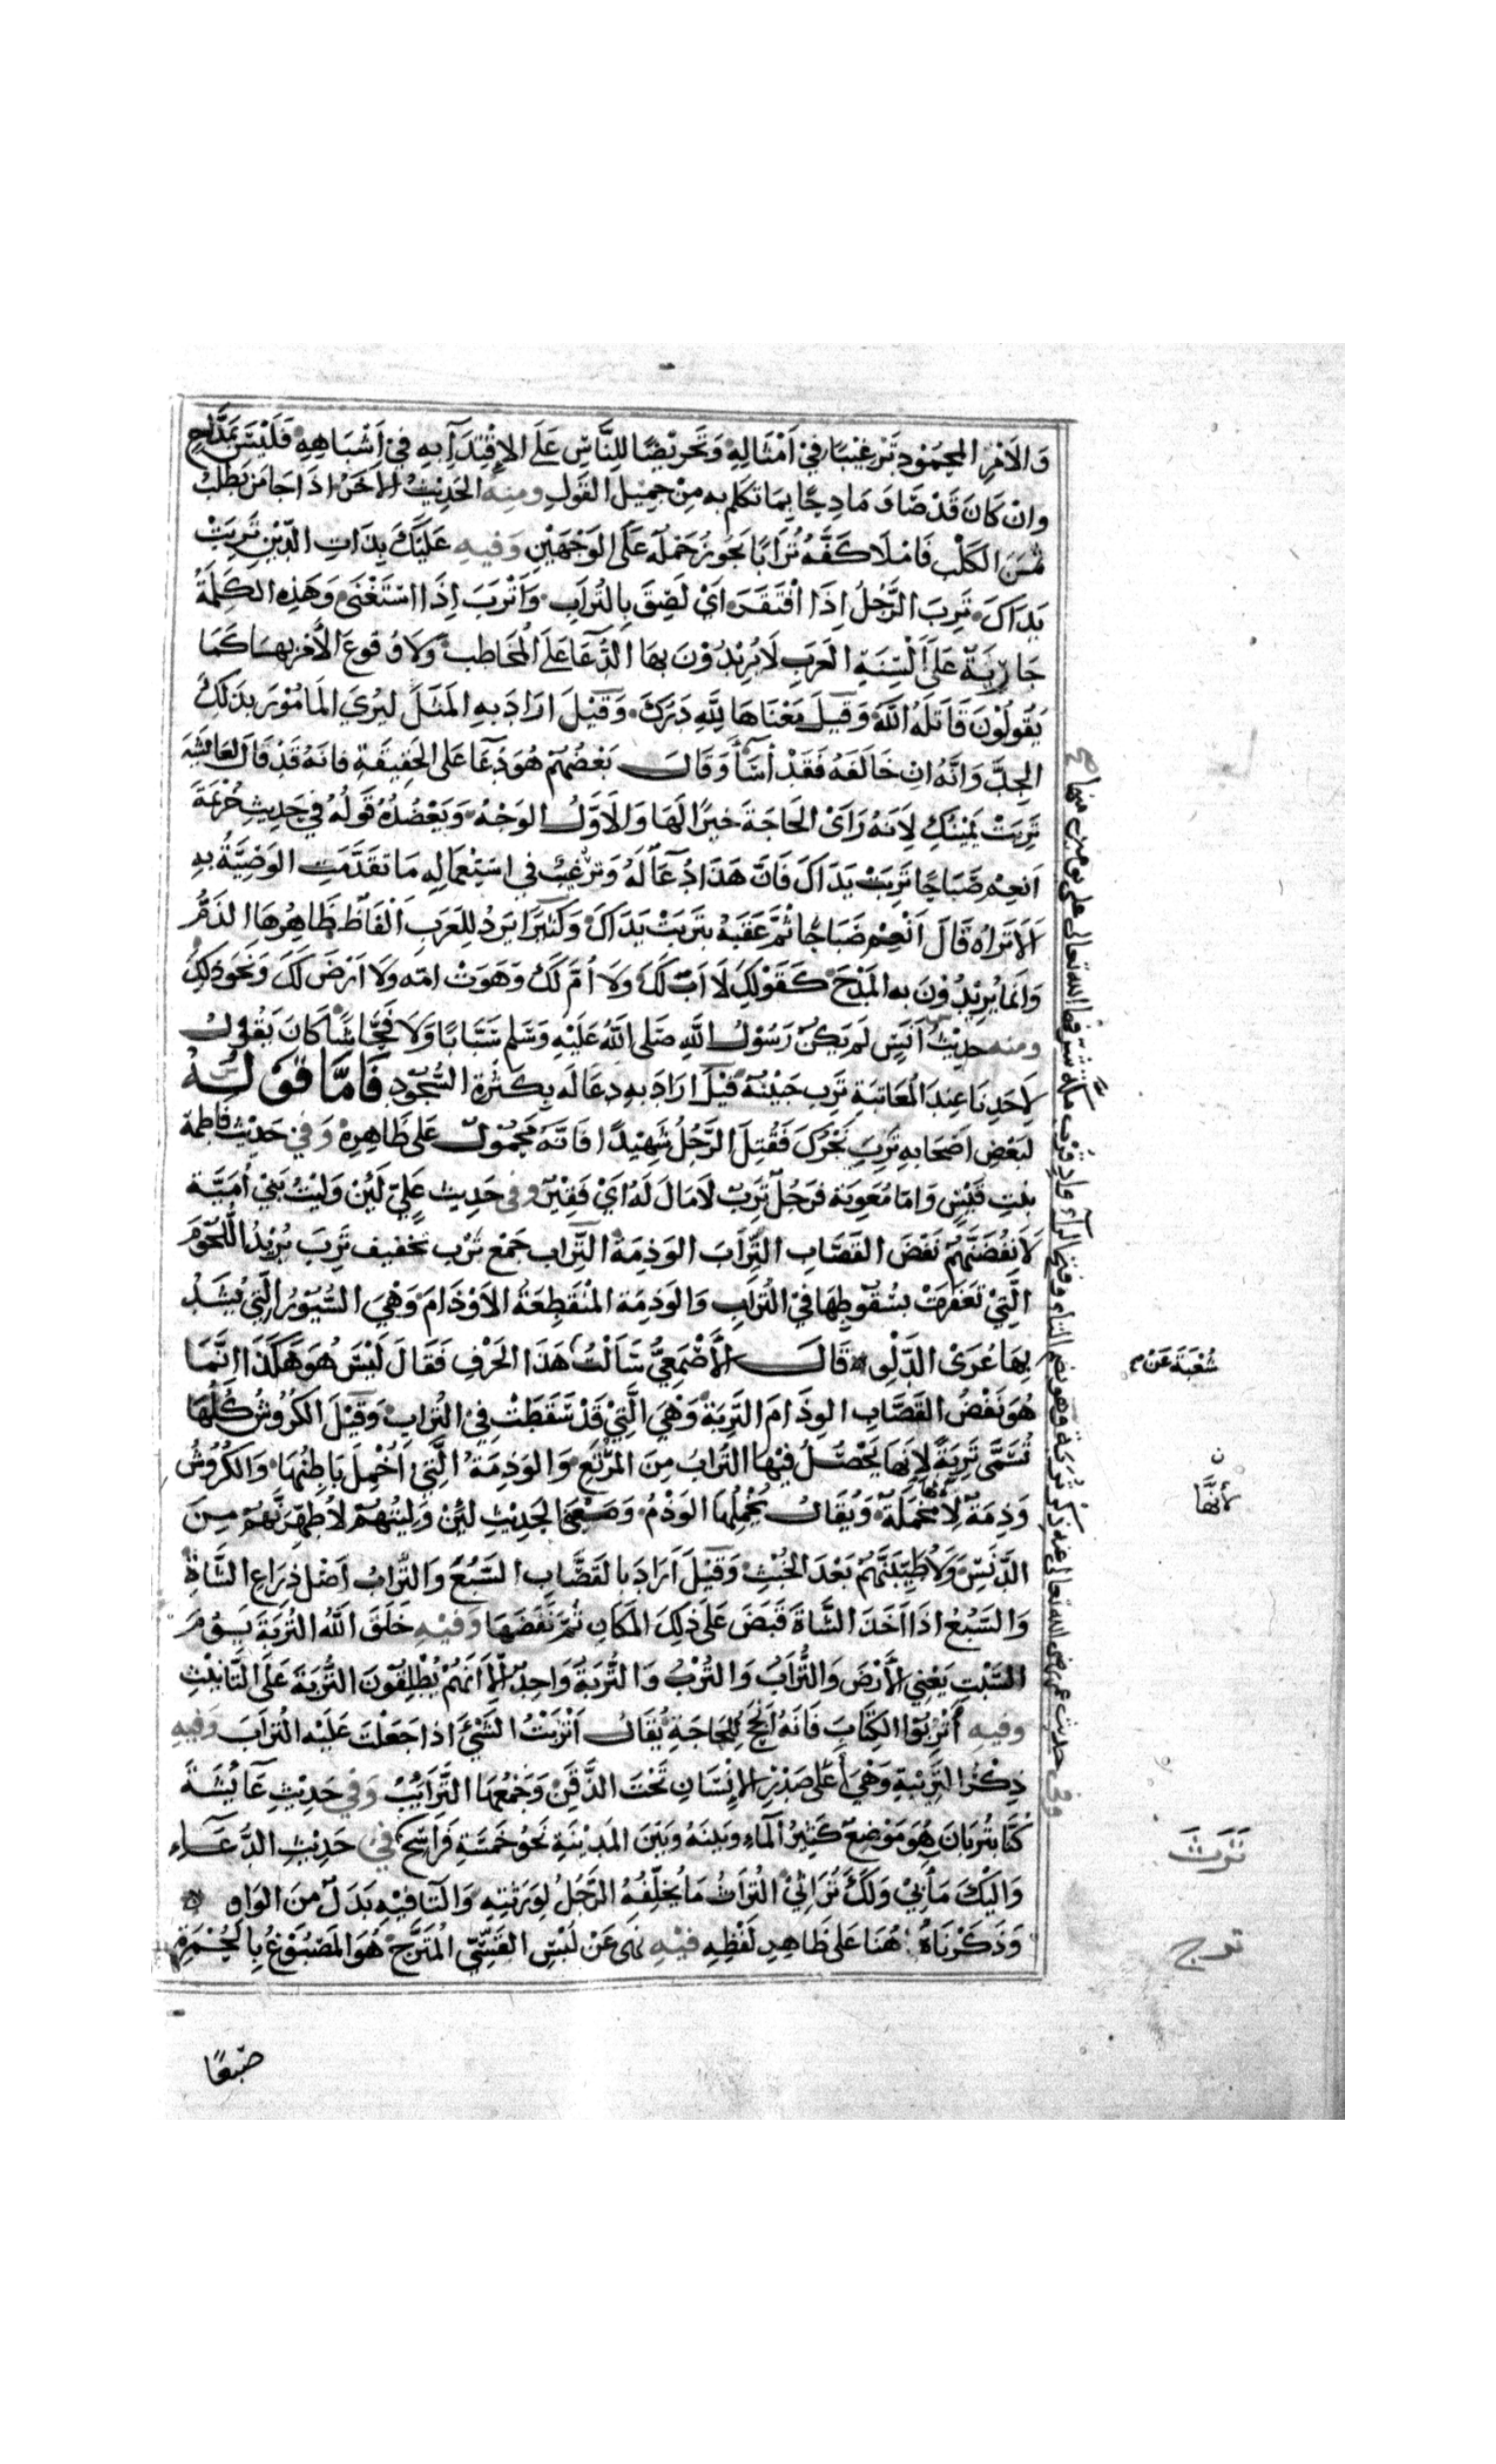 وَالأَمْرِ المَحْمُودِ تَرْغِيْبًا فِيْ اَمْثَالِهِ وَتَحْرِيْضًا لِلنَّاسِ عَلَى الاِقْتِدَآءِ بِهِ فِيْ أَشْبَاهِهِ فَلَيْسَ بِمَدَّاحٍ
وان كَانَ قَدْ صَارَ مَادِحًا بِمَا تَكَلَّم به مِنْ جَمِيْلِ القَوْلِ ومِنه الحَدِيْثُ الآخَرُ اذَا جَا مَنْ يَطْلُبُ
ثَمَنَ الكَلْبِ فَامْلَا كَفَّهُ تُرَابًا يَجُوزُ حَمْلُه عَلَى الوَجْهَيْنِ وَفيهِ عَلَيْكَ بِذَاتِ الدِّيْنِ تَرِبَتْ
يَدَاكَ تَرِبَ الرَّجُلُ اِذَا افْتَقَرَ اَيْ لَصِقَ بِالتُّرَابِ وَأَتْرَبَ اِذَا اسْتَغْنَى وَهَذِهِ الكَلِمَةُ
جَارِيَةٌ عَلَى أَلْسِنَةِ العَرَبِ لَا يُرِيْدُوْنَ بِهَا الدُّعَآ عَلَى المُخَاطَب وَلَا وُقُوعَ الأَمْرِ بِهَا كَمَا
يَقُولُوْنَ قَاتَلَهُ اللَّهُ وَقِيلَ مَعْنَاهَا لِلَّهِ دَرُّكَ وَقِيْلَ ارَادَ بِهِ المَثَلَ لِيُرِيَ المَامُوْرَ بِذَلِكَ
الجِدَّ وَاَنَّهُ اِنْ خَالَفَهُ فَقَدْ أَسَآءَ وَقَالَ بَعْضُهُمْ هُوَ دُعَآ عَلَى الحَقِيْقَةِ فَانَهُ قَدْ قَالَ لِعَائِشَةَ
تَرِبَتْ يَمِيْنُكِ لِاَنَهُ رَاَى الحَاجَةَ خَيْرًا لَهَا وَالاَوَّلُ الوَجْهُ وَيَعْضُدُهُ قَوْلُهُ فِي حَدِيثِ خُزَيْمَةَ
اَنْعِمْ صَبَاحًا تَرِبَتْ يَدَاكَ فَاِنَّ هَذَا دُعَآ لَهُ وَتَرْغِيبٌ فِي اسْتِعْمَالِهِ مَا تَقَدَّمَتِ الوَصِيَّةُ بِهِ
اَلَا تَرَاهُ قَالَ اَنْعِمْ صَبَاحًا ثُمَّ عَقَبَهُ بِتَرِبَتْ يَدَاكَ وَكَثِيْرًا يَرِدُ لِلعَرَبِ اَلْفَاظٌ ظَاهِرُهَا الذَمُّ
وَانَمَا يُرِيْدُوْنَ به المَدْحَ كَقَوْلِكَ لَا اَبَ لَكَ وَلَا أُمَّ لَكَ وَهَوَتْ امُّه وَلَا اَرْضَ لَكَ وَنَحْوِ ذَلِكَ
ومنه حَدِيْثُ اَنَسٍ لَمْ يَكُنْ رَسُوْلُ اللَّهِ صَلَى اللَّهُ عَلَيْهِ وَسَلَّم سَبَّابًا وَلَا فَحَّاشًا كَانَ يَقُوْلُ
لِاَحَدِنَا عِنْدَ المُعَاتَبَةِ تَرِبَ جَبِيْنُهُ قِيْلَ ارَادَ بِهِ دُعَا لَه بِكَثْرَةِ السُّجُوْدِ فَاَمَّا قَوْلُهُ
لِبَعْضِ اَصْحَابِهِ تَرِبَ نَحْرُكَ فَقُتِلَ الرَّجُلُ شَهِيْدًا فَاَنَّه مَحْمُوْلٌ عَلَى ظَاهِرِهِ وَفي حَدِيْثِ فَاطِمَةَ
بِنْتِ قَيْسٍ وَامَّا مُعَوِيَةُ فَرَجُلٌ تَرِبٌ لَا مَالَ لَهُ اَيْ فَقِيْرٌ وفي حَدِيث عَلِيٍّ لَئِنْ وَلِيْتُ بَنِيْ أُمَيَّةَ
لَاَنْفُضَنَّهُمْ نَفْضَ القَصَّابِ التِّرَابَ الوَذِمَةَ التِّرَاب جَمْع تَرْب تَخفيف تَرِبَ يُرْيدُ اللُّحُوْمَ
الَّتِيْ تَعَفَّرَتْ بِسُقُوْطِهَا فِيْ التُّرَابِ وَالوَذِمَة المُنْقَطِعَةُ الاَوْذَامِ وَهْيَ السُّيُوْرُ الَّتِي يُشَدُّ
بِهَا عُرَى الدَّلْوِ قَالَ الأَصْمَعِيُّ سَأَلْتُ هَذَا الحَرْفِ فَقَالَ لَيْسَ هُوَ هَكَذَا اِنَّمَا
هُوَ نَفْضُ القَصَّابِ الوِذَامَ التَّرِبَةَ وَهْيَ الَّتِيْ قَدْ سَقَطَتْ فِيْ التُرَابِ وَقِيْلَ الكُرُوْشُ كُلُّهَا
تُسَمَّى تَرِبَةً لِاَنَهَا يَحْصُلُ فِيْهَا التُّرَابُ مِنَ المَرْتَعِ وَالوَذِمَةُ الَّتِيْ اُخْمِلَ بَاطِنُهَا وَالكُرُوْشُ
وَذِمَةٌ لِاَنَّهَا مُخْمَلَةٌ وَيُقَالُ لِخَمْلِهَا الوَذَمُ وَمَعْنَى الحَدِيْثِ لَئِنْ وَلِيْتُهُمْ لاُطَهِّرَنَّهُمْ مِنَ
الدَّنَسِ وَلاُطَيِّبَنَّهُمْ بَعْدَ الخُبْثِ وَقِيْلَ اَرَادَ بِالقَصَّابِ السَّبُعَ وَالتِّرَابُ اَصْل ذِرَاعِ الشَّاةِ
وَالسَّبُعُ اذَا اَخَذَ الشَّاةَ قَبَضَ عَلَى ذَلِكَ المَكَانِ ثُمَّ نَفَضَهَا وَفيْهِ خَلَقَ اللَّهُ التُّرْبَةَ يَوْمَ
السَّبْتِ يَعْنِي الأَرْضَ وَالتُّرَابُ وَالتُّرْبُ وَالتُّرْبَةُ وَاحِدٌ اِلَّا اَنَهُمْ يُطْلِقُوْنَ التُّرْبَةَ عَلَى التَّانِيْثِ
وفيهِ أَتْرِبُوْا الكِتَابَ فَانَهُ اَنْجَحُ لِلْحَاجَةِ يُقَالُ اَتْرَبْتُ الشَّيْئَ اذا جَعَلْتَ عَلَيْهِ التُرَابَ وَفيهِ
ذِكْرُ التَّرِيْبَةِ وَهْيَ أَعْلَى صَدْرِ الاِنْسَانِ تَحْتَ الذَّقَنِ وَجَمْعُهَا التَّرَايِبُ وَفي حَدِيْثِ عَآئِشَةَ
كُنَّا بِتُرْبَانَ هُوَ مَوْضِعٌ كَثِيْرُ المَآءِ وَبَيْنَهُ وَبَيْنَ المَدِيْنَةِ نَحْوُ خَمْسَةِ فَرَاسِخَ في حَدِيْثِ الدُّعَآءِ
وَالَيْكَ مَآبِيْ وَلَكَ تُرَاثِيْ التُرَاثُ مَا يُخَلِّفُهُ الرَّجُلُ لِوَرَثَتِهِ وَالتَا فِيْهِ بَدَلٌ مِنَ الوَاوِ
وَذَكَرْنَاهُ هُنَا عَلَى ظَاهِرِ لَفْظِهِ فيْهِ نَهَى عَنْ لُبْسِ القَسِّيِّ المُتَرَّجِ هُوَ المَصْبُوْغُ بِالحُمْرَةِ
وفي حديث عمر رضي الله تعالى عنه ذكر تُرَبَة وهو بضم التاء وفتح الرآء وادٍ قرب مكة شرفها الله تعالى على يومين منها
شُعْبَةَ عَنْ
ن
لأَنَّهَا
تَرَثَ
ترج
صَبْغًا